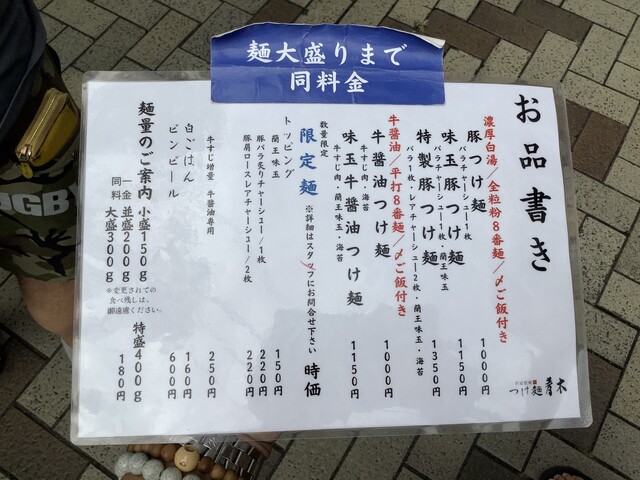 麺大盛りまで
同料金
お品書き
濃厚白湯／全粒粉8番麺／〆ご飯付き
豚つけ麺 1000円
バラチャーシュー1枚
味玉豚つけ麺 1150円
バラチャーシュー1枚・蘭王味玉
特製豚つけ麺 1350円
バラ1枚・レアチャーシュー2枚・蘭王味玉・海苔
牛醤油／平打8番麺／〆ご飯付き
牛醤油つけ麺 1000円
牛すじ肉・海苔
味玉牛醤油つけ麺 1150円
牛すじ肉・蘭王味玉・海苔
数量限定
限定麺 ※詳細はスタッフにお問合せ下さい 時価
トッピング
蘭王味玉 150円
豚バラ炙りチャーシュー／1枚 220円
豚肩ロースレアチャーシュー／2枚 220円
牛すじ増量 牛醤油専用 250円
白ごはん 160円
ビンビール 600円
麺量のご案内
小盛150g
並盛200g
大盛300g
同一料金
※変更されての
食べ残しは、
御遠慮ください。
特盛400g 180円
つけ麺 青木
RGBY